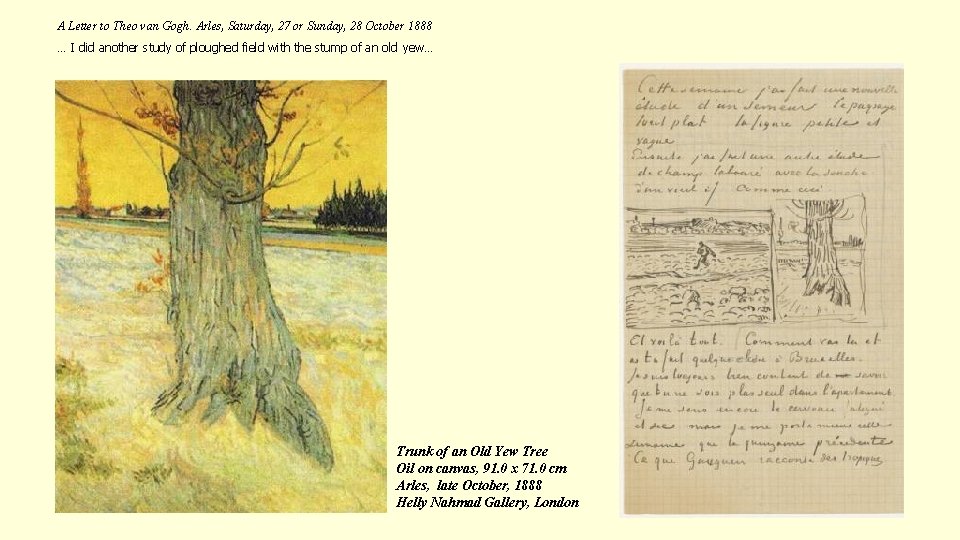 A Letter to Theo van Gogh. Arles, Saturday, 27 or Sunday, 28 October 1888
... I did another study of ploughed field with the stump of an old yew...
Cette semaine j'ai fait une nouvelle
étude d'un semeur le paysage
tout plat la figure petite et
vague
Ensuite j'ai fait une autre étude
de champ labouré avec la souche
d'un vieil if comme ceci
Et voilà tout. Comment vas tu et
as tu fait quelque chose à Bruxelles.
Je suis toujours bien content de savoir
que tu ne sois plus seul dans l'appartement
Je me sens encore le cerveau fatigué
et sec mais je me porte mieux cette
semaine que la quinzaine précédente
Ce que Gauguin raconte des tropiques
Trunk of an Old Yew Tree
Oil on canvas, 91.0 x 71.0 cm
Arles, late October, 1888
Helly Nahmad Gallery, London